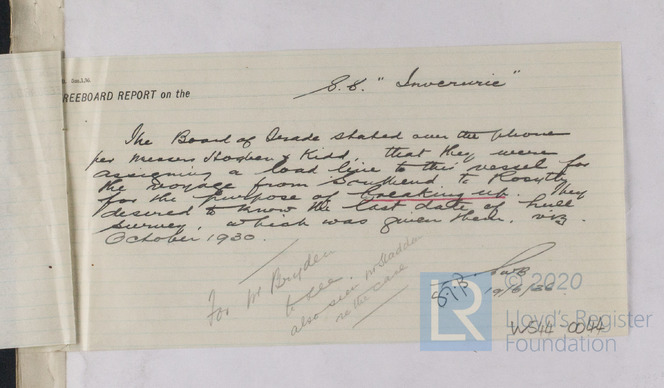 REEBOARD REPORT on the
S.S. "Inverurie"
The Board of Trade stated over the phone
per Messrs Hogben & Kidd, that they were
assigning a load line to this vessel for
the voyage from Southend to Rosyth
for the purpose of breaking up. They
desired to know the last date of hull
survey, which was given them, viz.
October 1930.
For Mr Bryden
to see.
also seen Mr
re the case
19/6/36.
W544 0044
© 2020
LR
Lloyd's Register
Foundation